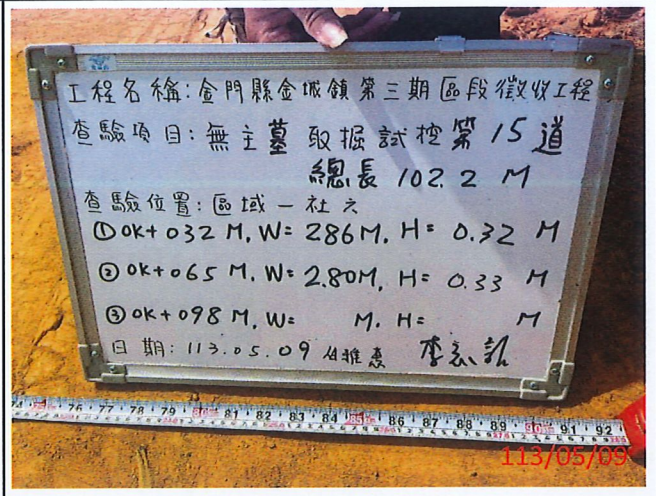 工程名稱:金門縣金城鎮第三期區段徵收工程
查驗項目:無主墓取掘試挖第15道
總長102.2 M
查驗位置:區域一社六
①0K+032 M, W= 286M, H= 0.32 M
②0K+065 M, W= 2.80M, H= 0.33 M
③0K+098 M, W= M. H= M
日期:113.05.09 李
76 77 78 79 80 81 82 83 84 85 86 87 88 89 90 91 92
113/05/09